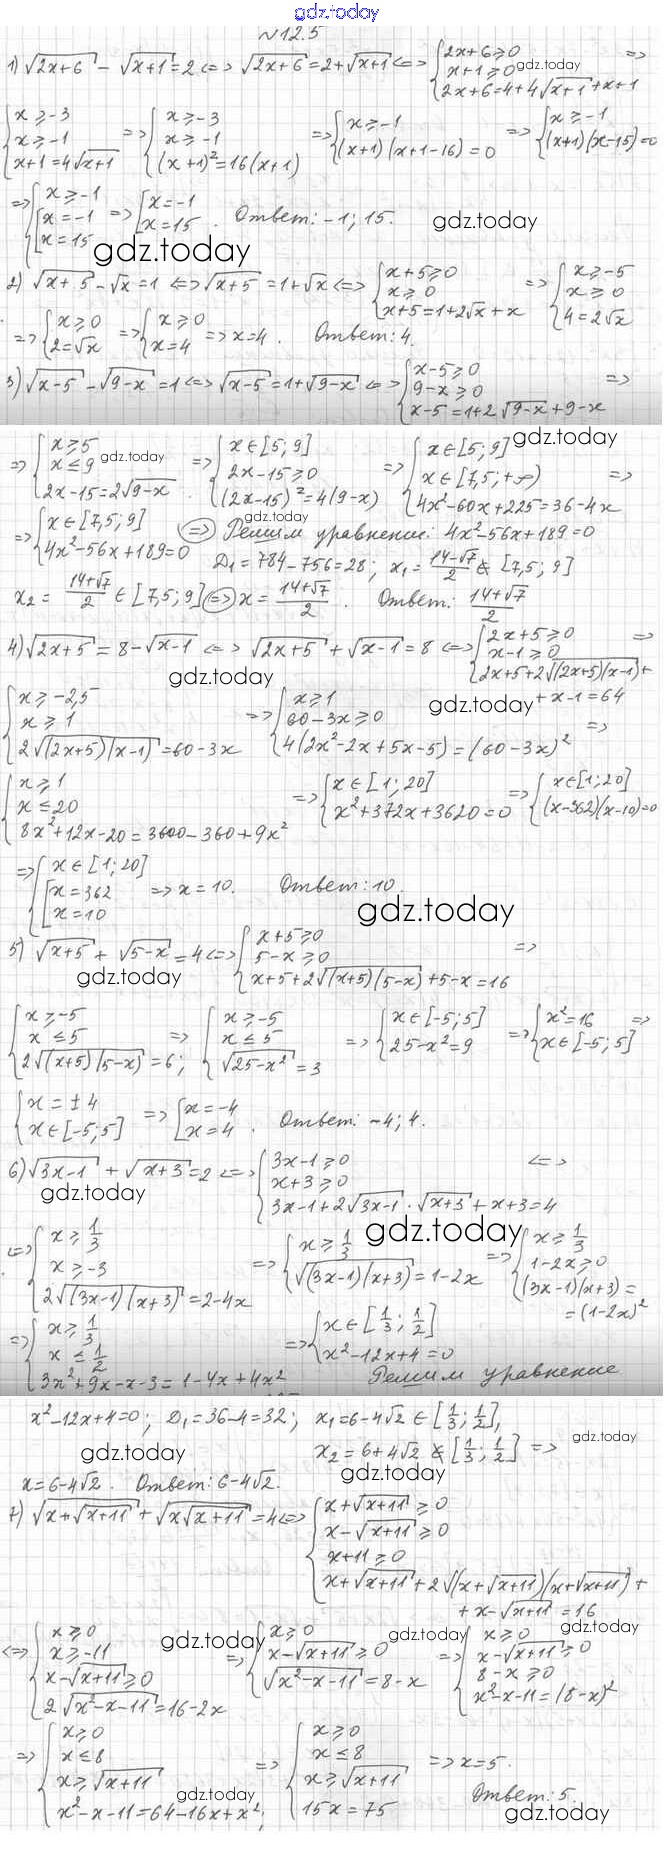 gdz.today
№12.5
1) √(2x+6) - √(x+1) = 2 <=> √(2x+6) = 2+√(x+1) <=> { 2x+6≥0 gdz.today =>
x+1≥0
2x+6=4+4√(x+1)+x+1
{ x≥-3; x≥-1; x+1=4√(x+1) => { x≥-3; x≥-1; (x+1)²=16(x+1) => { x≥-1; (x+1)(x+1-16)=0 => { x≥-1; (x+1)(x-15)=0
=> { x≥-1; [ x=-1; x=15 => [ x=-1; x=15 . Ответ: -1; 15. gdz.today
gdz.today
2) √(x+5) - √x = 1 <=> √(x+5) = 1+√x <=> { x+5≥0; x≥0; x+5=1+2√x+x => { x≥-5; x≥0; 4=2√x
=> { x≥0; 2=√x => { x≥0; x=4 => x=4. Ответ: 4.
gdz.today
3) √(x-5) - √(9-x) = 1 <=> √(x-5) = 1+√(9-x) <=> { x-5≥0; 9-x≥0; x-5=1+2√(9-x)+9-x =>
gdz.today
=> { x≥5; x≤9 gdz.today; 2x-15=2√(9-x) => { x∈[5;9]; 2x-15≥0; (2x-15)²=4(9-x) => { x∈[5;9]; x∈[7,5;+∞); 4x²-60x+225=36-4x =>
gdz.today
=> { x∈[7,5;9]; 4x²-56x+189=0 => Решим уравнение: 4x²-56x+189=0
D₁=784-756=28; x₁=(14-√7)/2 ∉ [7,5;9]
x₂=(14+√7)/2 ∈ [7,5;9] => x=(14+√7)/2 . Ответ: (14+√7)/2
4) √(2x+5) = 8-√(x-1) <=> √(2x+5) + √(x-1) = 8 <=> { 2x+5≥0; x-1≥0; 2x+5+2√((2x+5)(x-1))+ =>
gdz.today
gdz.today
+x-1=64
{ x≥-2,5; x≥1; 2√((2x+5)(x-1))=60-3x => { x≥1; 60-3x≥0; 4(2x²-2x+5x-5)=(60-3x)² =>
{ x≥1; x≤20; 8x²+12x-20=3600-360+9x² => { x∈[1;20]; x²+372x+3620=0 => { x∈[1;20]; (x-362)(x-10)=0
=> { x∈[1;20]; [ x=362; x=10 => x=10. Ответ: 10.
gdz.today
5) √(x+5) + √(5-x) = 4 <=> { x+5≥0; 5-x≥0; x+5+2√((x+5)(5-x))+5-x=16 =>
gdz.today
{ x≥-5; x≤5; 2√((x+5)(5-x))=6; => { x≥-5; x≤5; √(25-x²)=3 => { x∈[-5;5]; 25-x²=9 => { x²=16; x∈[-5;5] =>
{ x=±4; x∈[-5;5] => [ x=-4; x=4 . Ответ: -4; 4.
6) √(3x-1) + √(x+3) = 2 <=> { 3x-1≥0; x+3≥0; 3x-1+2√(3x-1)·√(x+3)+x+3=4 <=>
gdz.today
gdz.today
<=> { x≥1/3; x≥-3; 2√((3x-1)(x+3))=2-4x => { x≥1/3; √((3x-1)(x+3))=1-2x => { x≥1/3; 1-2x≥0; (3x-1)(x+3)=
=(1-2x)²
=> { x≥1/3; x≤1/2; 3x²+9x-x-3=1-4x+4x² => { x∈[1/3;1/2]; x²-12x+4=0
Решим уравнение
x²-12x+4=0; D₁=36-4=32; x₁=6-4√2 ∈ [1/3;1/2],
gdz.today
x₂=6+4√2 ∉ [1/3;1/2] => gdz.today
x=6-4√2. Ответ: 6-4√2. gdz.today
7) √(x+√(x+11)) + √(x√(x+11)) = 4 <=> { x+√(x+11)≥0; x-√(x+11)≥0; x+11≥0; x+√(x+11)+2√((x+√(x+11))(x+√(x+11)))+
+x-√(x+11)=16
gdz.today gdz.today gdz.today
<=> { x≥0; x≥-11; x-√(x+11)≥0; 2√(x²-x-11)=16-2x => { x≥0; x-√(x+11)≥0; √(x²-x-11)=8-x => { x≥0; x-√(x+11)≥0; 8-x≥0; x²-x-11=(8-x)²
=> { x≥0; x≤8; x≥√(x+11); x²-x-11=64-16x+x²; => { x≥0; x≤8; x≥√(x+11); 15x=75 => x=5.
gdz.today
Ответ: 5.
gdz.today